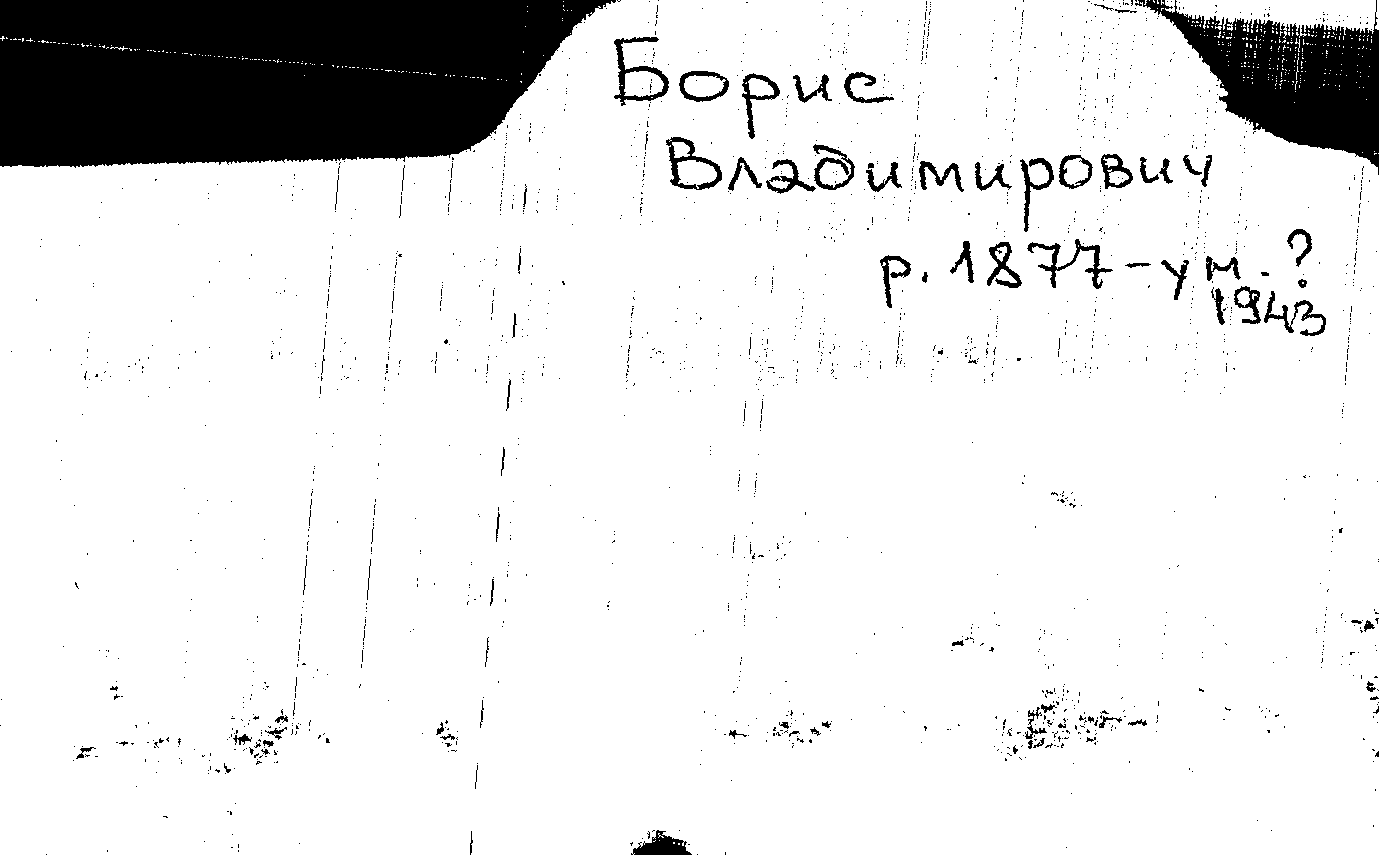 Борис
Владимирович
р. 1877-ум. ?
1943